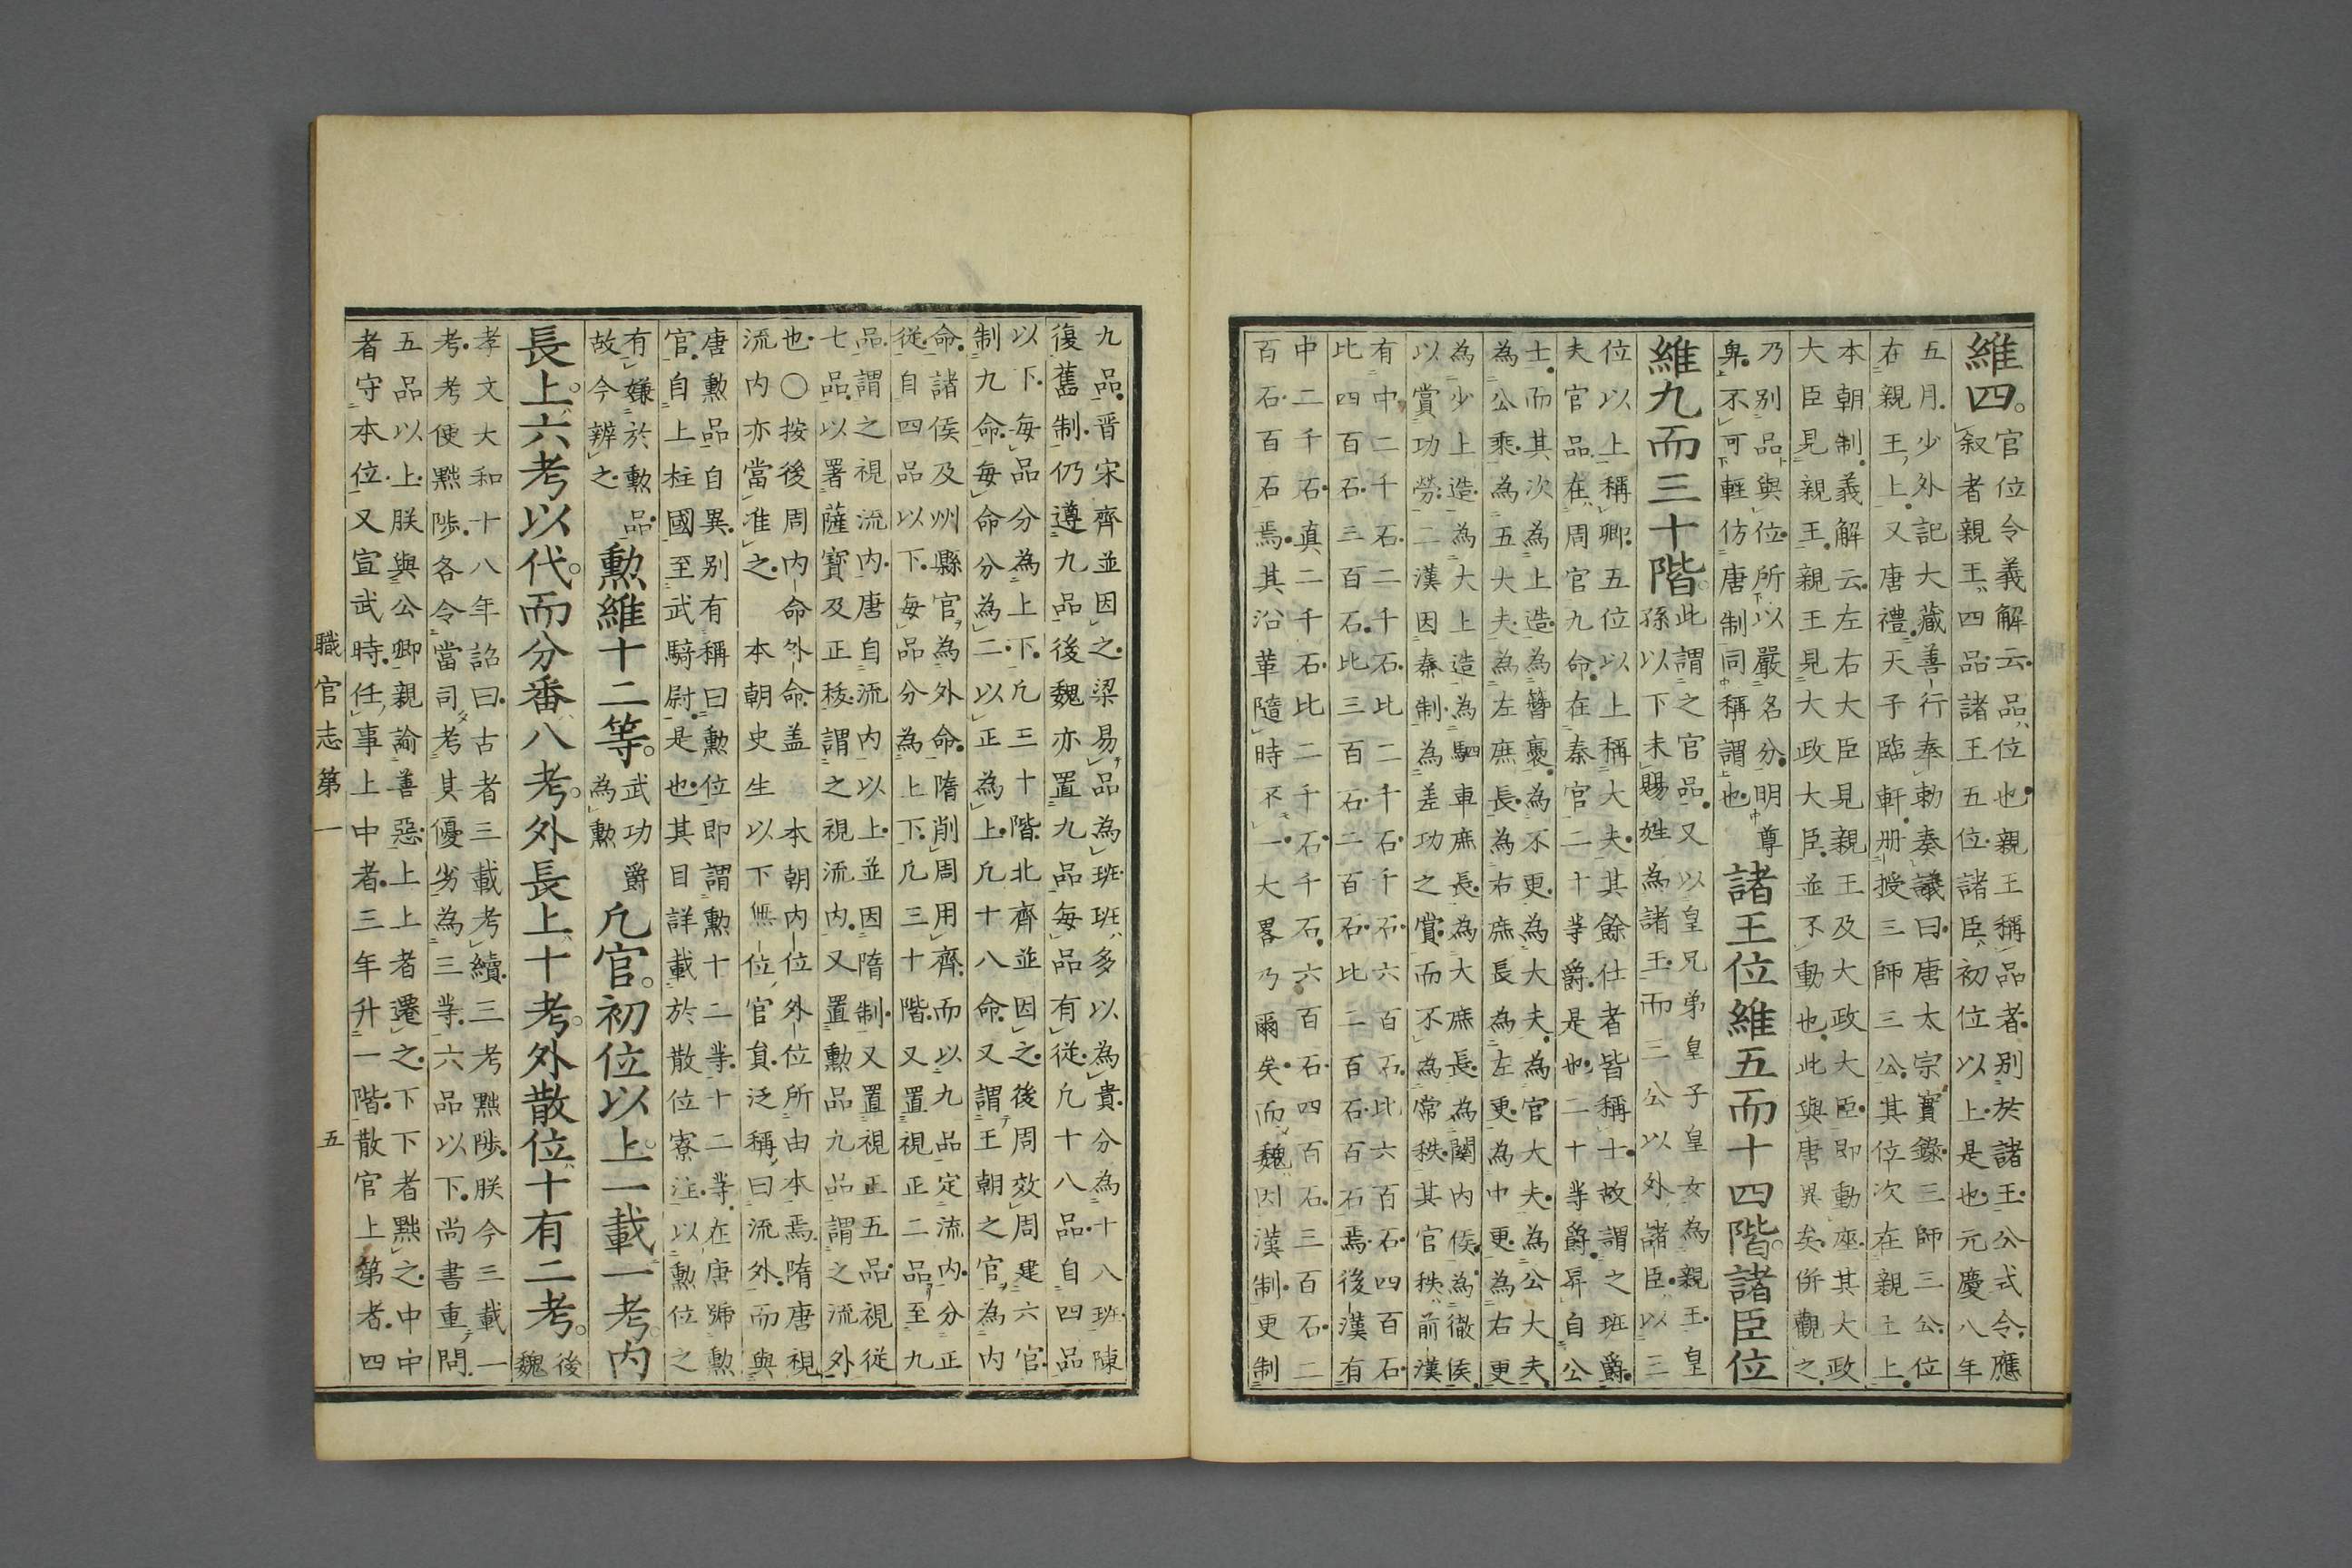 維四。官位令義解云品位也親王稱品者別於諸王公式令應
叙者親王四品諸王五位諸臣初位以上是也元慶八年
五月少外記大藏善行奉勅奏議曰唐太宗實録三師三公位
在親王上又唐禮天子臨軒册授三師三公其位次在親王上
本朝制義解云左右大臣見親王及大政大臣即動座其大政
大臣見親王親王見大政大臣並不動也此與唐異矣併觀之
乃別品與位所以嚴名分明尊
卑不可輕仿唐制同稱謂也諸王位維五而十四階諸臣位
維九而三十階此謂之官品又以皇兄弟皇子皇女為親王皇
孫以下未賜姓為諸王而三公以外諸臣以三
位以上稱卿五位以上稱大夫其餘仕者皆稱士故謂之班爵
夫官品在周官九命在秦官二十等爵是也二十等爵昇自公
士而其次為上造為簪褭為不更為大夫為官大夫為公大夫
為公乘為五大夫為左庶長為右庶長為左更為中更為右更
為少上造為大上造為駟車庶長為大庶長為關內侯為徹侯
以賞功勞二漢因秦制為差功之賞而不為常秩其官秩前漢
有中二千石二千石比二千石千石六百石比六百石四百石
比四百石三百石比三百石二百石比二百石百石焉後漢有
中二千石真二千石比二千石千石六百石四百石三百石二
百石百石焉其沿革隨時不一大畧乃爾矣而魏因漢制更制
九品晋宋齊並因之梁易品為班班多以為貴分為十八班陳
復舊制仍遵九品後魏亦置九品每品有從凢十八品自四品
以下每品分為上下凢三十階北齊並因之後周效周建六官
制九命每命分為二以正為上凢十八命又謂王朝之官為內
命諸侯及州縣官為外命隋削周用齊而以九品定流內分正
從自四品以下每品分為上下凢三十階又置視正二品至九
品謂之視流內唐自流內以上並因隋制又置視正五品視從
七品以署薩寶及正秡謂之視流內又置勲品九品謂之流外
也〇按後周內命外命盖本朝內位外位所由本焉隋唐視
流內亦當准之本朝史生以下無位官負泛稱曰流外而與
唐勲品自異別有稱曰勲位即謂勲十二等十二等在唐號勲
官自上柱國至武騎尉是也其目詳載於散位寮注以勲位之
有嫌於勲品
故今辨之勲維十二等。武功爵
為勲凢官。初位以上一載一考。內
長上。六考以代。而分番八考。外長上十考。外散位十有二考。後
魏
孝文大和十八年詔曰古者三載考績三考黜陟朕今三載一
考考使黜陟各令當司考其優劣為三等六品以下尚書重問
五品以上朕與公卿親論善惡上上者遷之下下者黜之中中
者守本位又宣武時任事上中者三年升一階散官上第者四
職官志第一　五